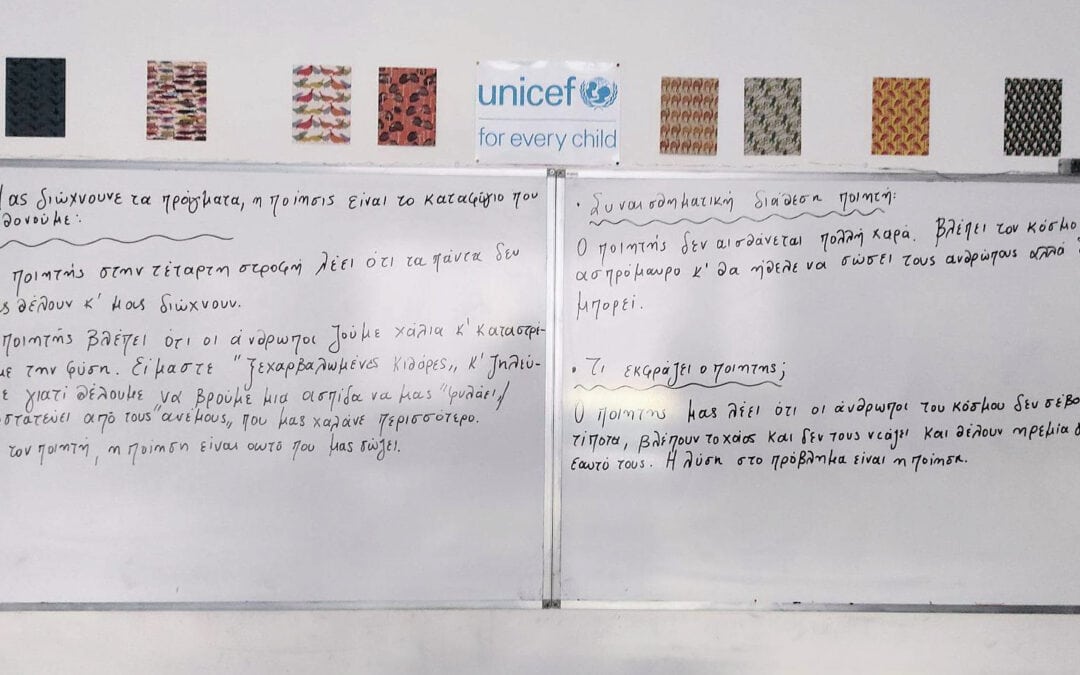 unicef
for every child
Μας διώχνουνε τα πράγματα, η ποίησις είναι το καταφύγιο που
θονούμε:
ποιητής στην τέταρτη στροφή λέει ότι τα πάντα δεν
ς θέλουν κ' μας διώχνουν.
ποιητής βλέπει ότι οι άνθρωποι ζούμε χάλια κ' καταστρέ-
με την φύση. Είμαστε "ξεχαρβαλωμένες κιθάρες,, κ' ζηλεύ-
ε γιατί θέλουμε να βρούμε μια ασπίδα να μας "φυλάει,,/
οστατεύει από τους "ανέμους,, που μας χαλάνε περισσότερο.
τον ποιητή, η ποίηση είναι αυτό που μας σώζει.
· Συναισθηματική διάθεση ποιητή:
Ο ποιητής δεν αισθάνεται πολλή χαρά. Βλέπει τον κόσμο
ασπρόμαυρο κ' θα ήθελε να σώσει τους ανθρώπους αλλά
μπορεί.
· Τι εκφράζει ο ποιητής;
Ο ποιητής μας λέει ότι οι άνθρωποι του κόσμου δεν σέβο
τίποτα, βλέπουν το χάος και δεν τους νοιάζει και θέλουν ηρεμία
εαυτό τους. Η λύση στο πρόβλημα είναι η ποίηση.